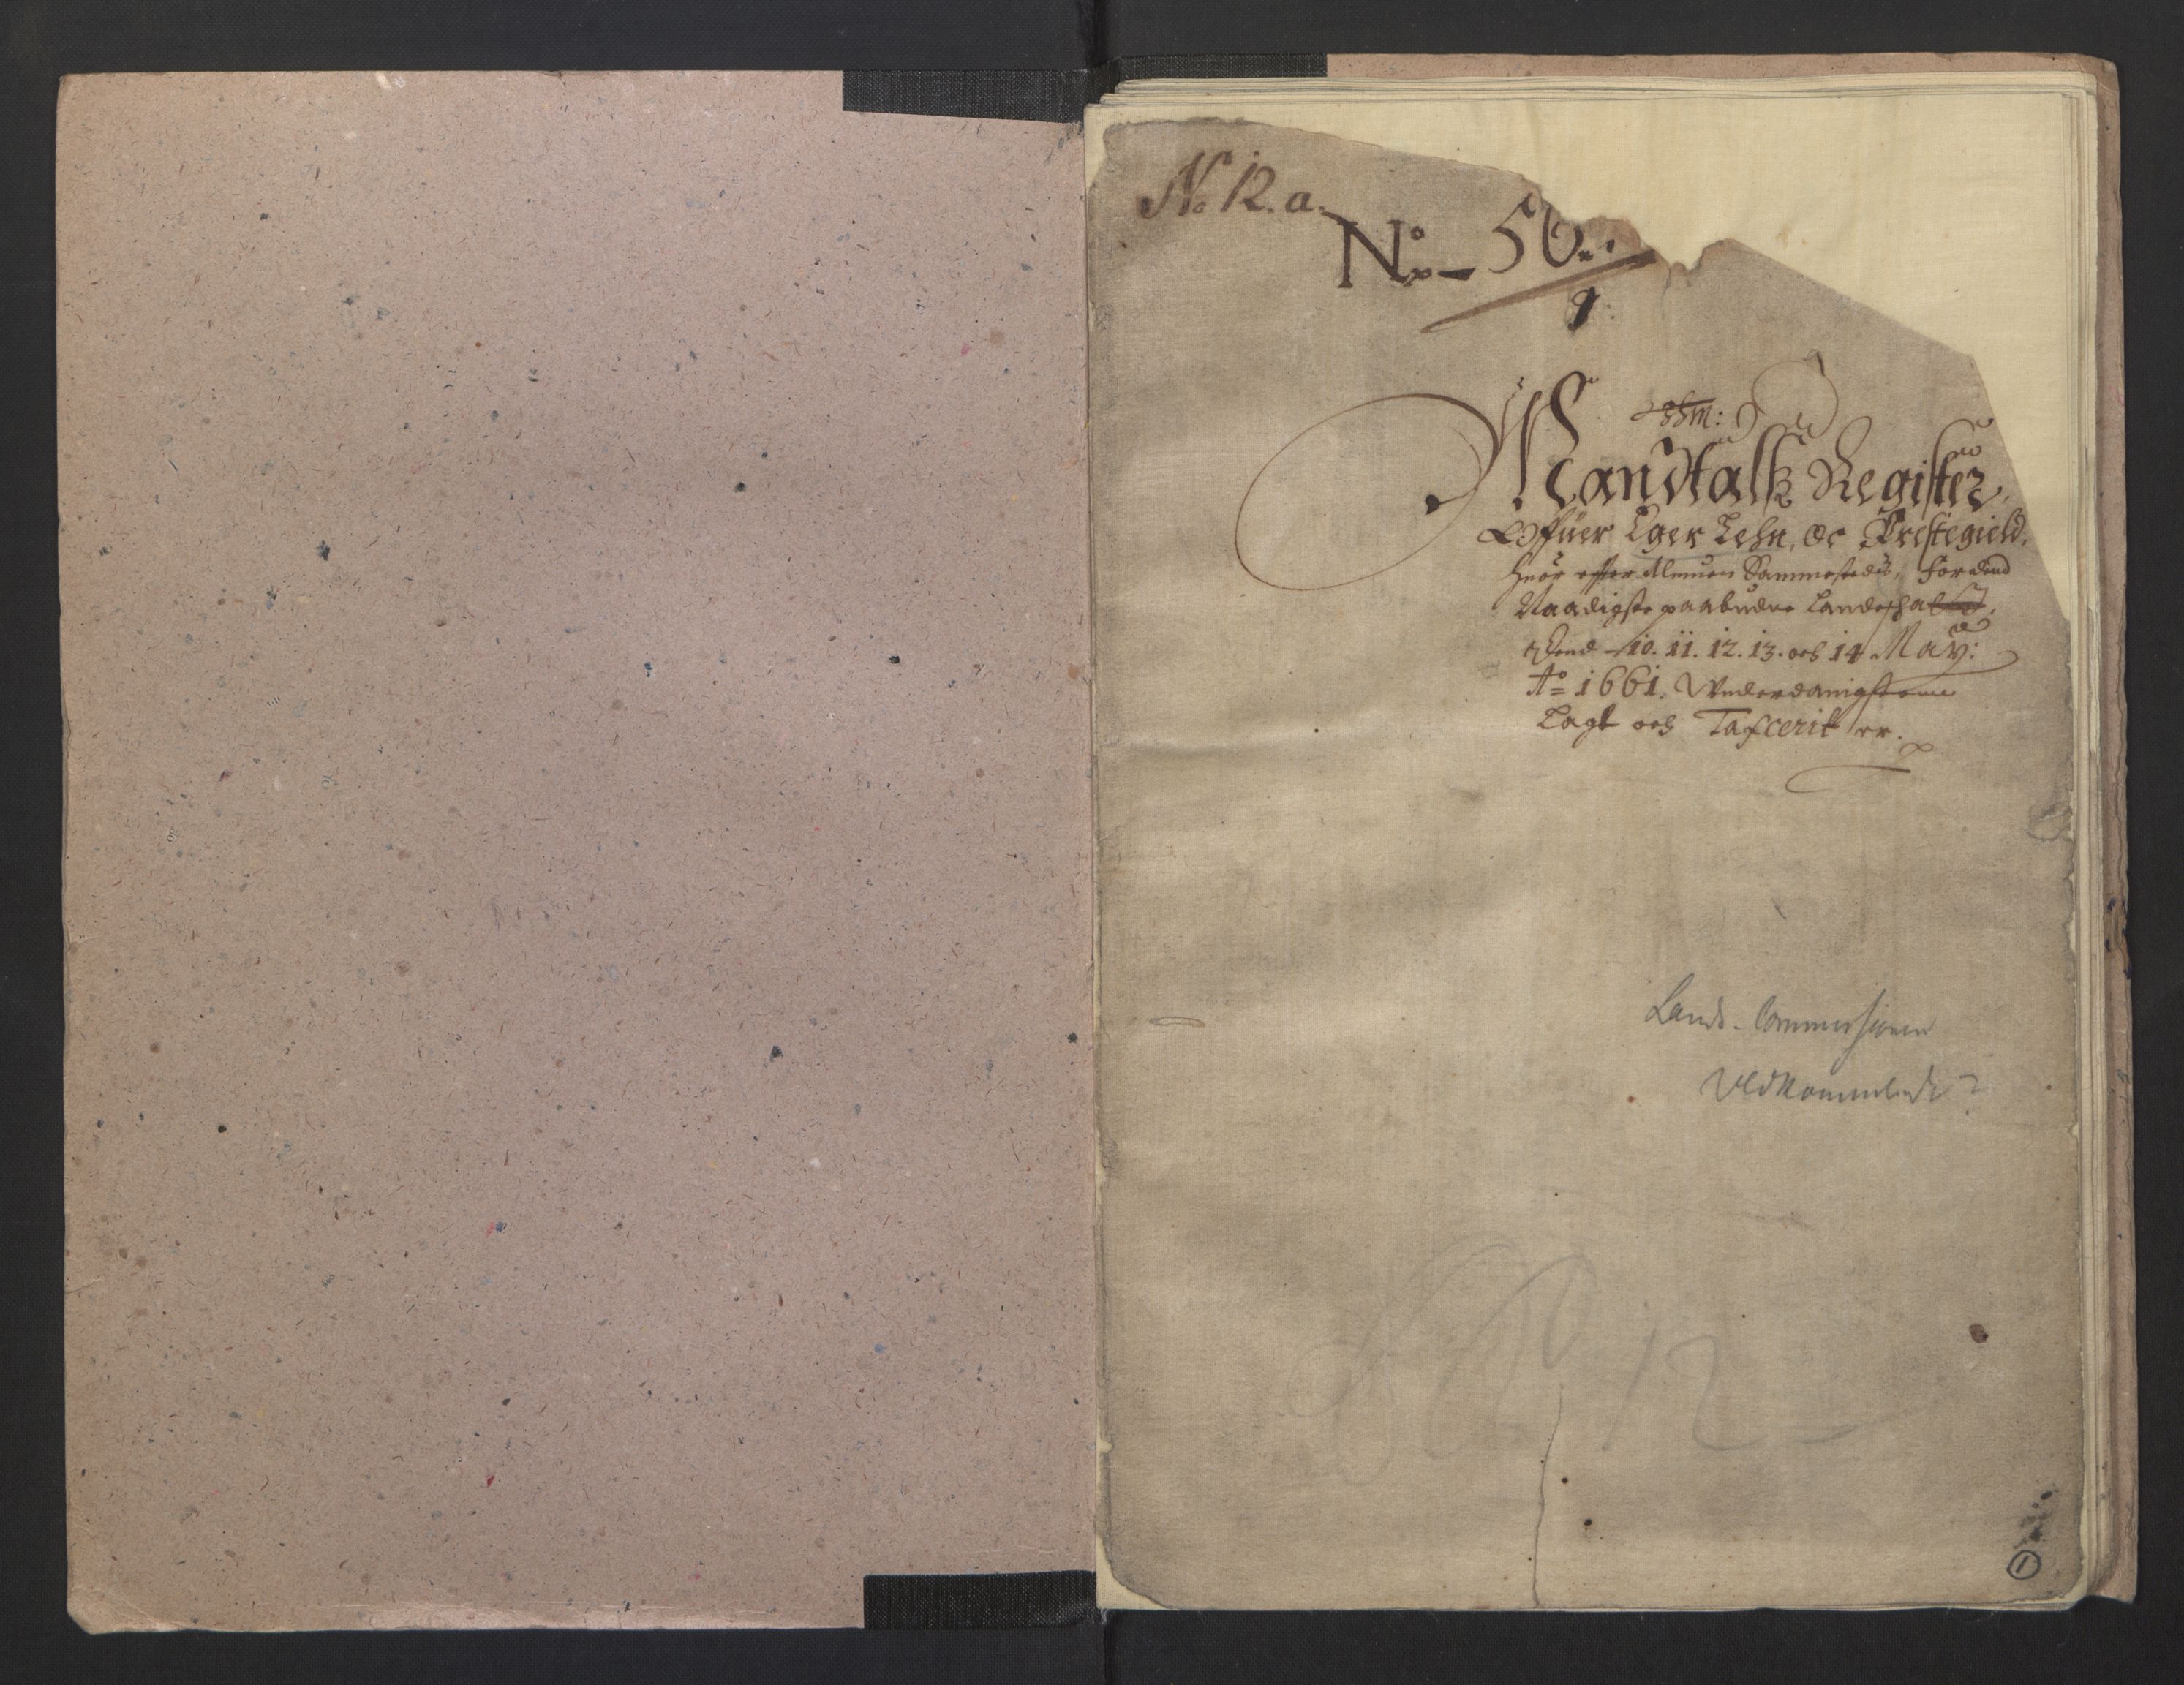 No 12. a.
No – 56.
9
Mandtalß Register,
Offuer Eger Lehn, Oc Prestegield,
Huor effter Almuen Sammesteds, for dend
Naadigste paabudne Landeschatt,
Dend – 10. 11. 12. 13. och 14 May:
Ao 1661. Vnderdanigst
Lagt och Taxcerit er.
Lands-Commissionen
Vedkommende?
12
1